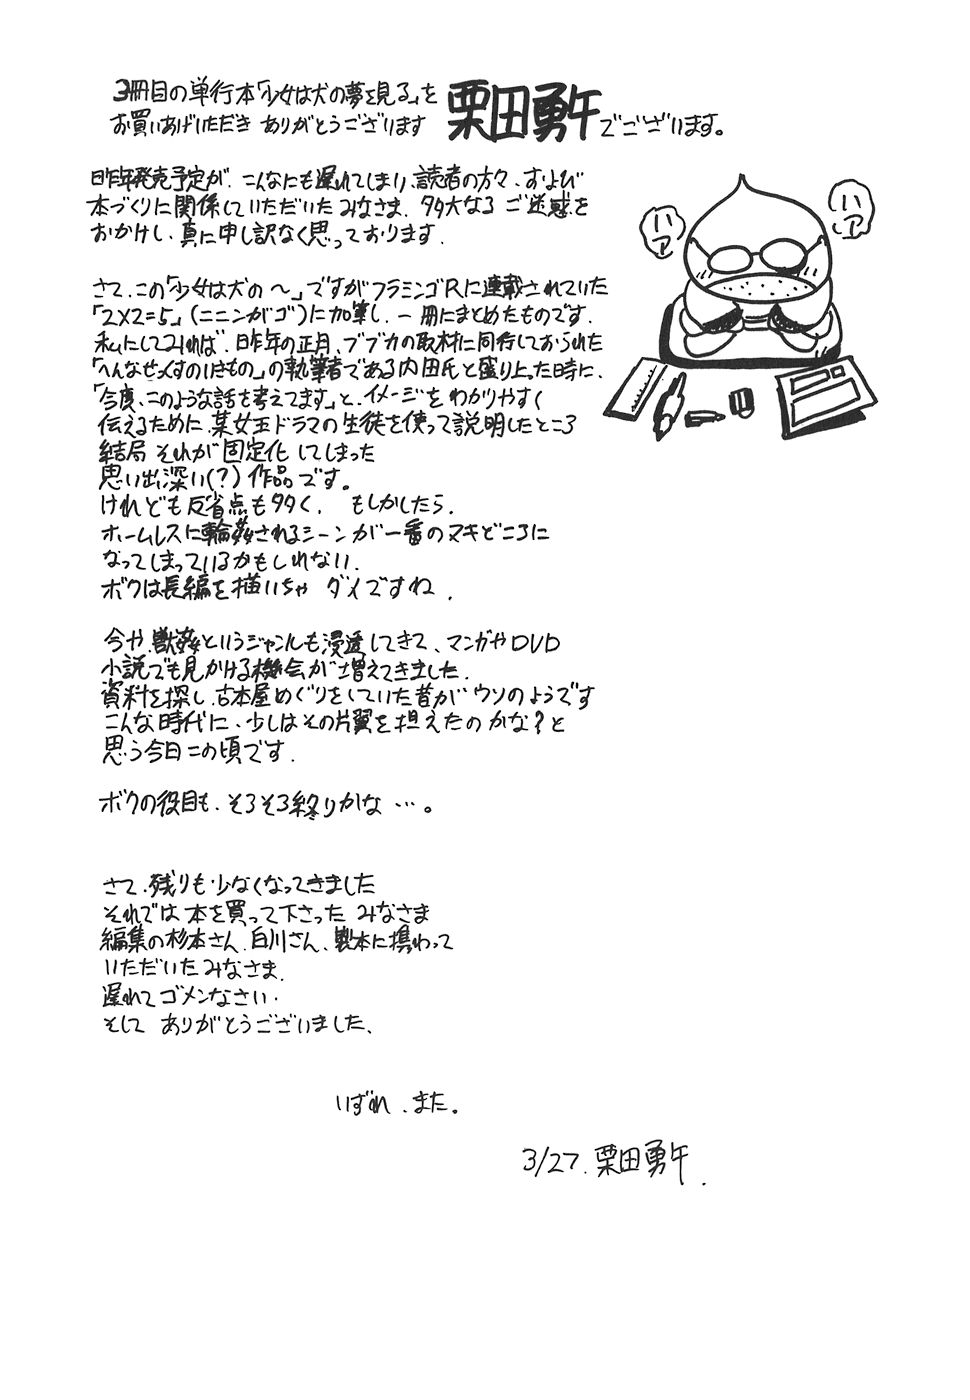 3冊目の単行本「少女は犬の夢を見る」を
お買いあげいただき ありがとうございます
栗田勇午でございます。
ハァ
ハァ
昨年発売予定が、こんなにも遅れてしまい、読者の方々、および
本づくりに関係していただいたみなさま、多大なるご迷惑を
おかけし、真に申し訳なく思っております.
さて、この「少女は犬の〜」ですがフラミンゴRに連載されていた
「2×2=5」(ニニンがゴ)に加筆し、一冊にまとめたものです.
私にしてみれば、昨年の正月、ブブカの取材に同行しておられた
「へんなせっくすのいきもの」の執筆者である内田氏と盛り上った時に、
「今度、このような話を考えてます」と、イメージをわかりやすく
伝えるために、某女王ドラマの生徒を使って説明したところ
結局 それが固定化してしまった
思い出深い(?)作品です。
けれども反省点も多く、もしかしたら、
ホームレスに輪姦されるシーンが一番のヌキどころに
なってしまっているかもしれない.
ボクは長編を描いちゃ ダメですね.
今や、獣姦というジャンルも浸透してきて、マンガやDVD
小説でも見かける機会が増えてきました.
資料を探し、古本屋めぐりをしていた昔が ウソのようです
こんな時代に、少しはその片翼を担えたのかな?と
思う今日この頃です.
ボクの役目も、そろそろ終りかな…。
さて、残りも少なくなってきました
それでは 本を買って下さった みなさま
編集の杉本さん、白川さん、製本に携わって
いただいたみなさま.
遅れてゴメンなさい.
そして ありがとうございました、
いずれ、また。
3/27. 栗田勇午.